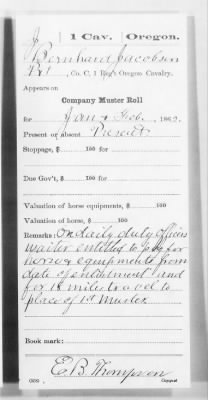 J | 1 Cav. | Oregon.
Bernhard Jacobson
Pvt, Co. C, 1 Reg't Oregon Cavalry.
Appears on
Company Muster Roll
for Jan & Feb, 186
Present or absent Present
Stoppage, $ 100 for
Due Gov't, $ 100 for
Valuation of horse equipments, $ 100
Valuation of horse, $ 100
Remarks: On daily duty officers
waiter entitled to pay for
horse & equipments from
date of enlistment and
for miles travel to
place of 1st Muster
Book mark:
E.B. Thompson
Copyist